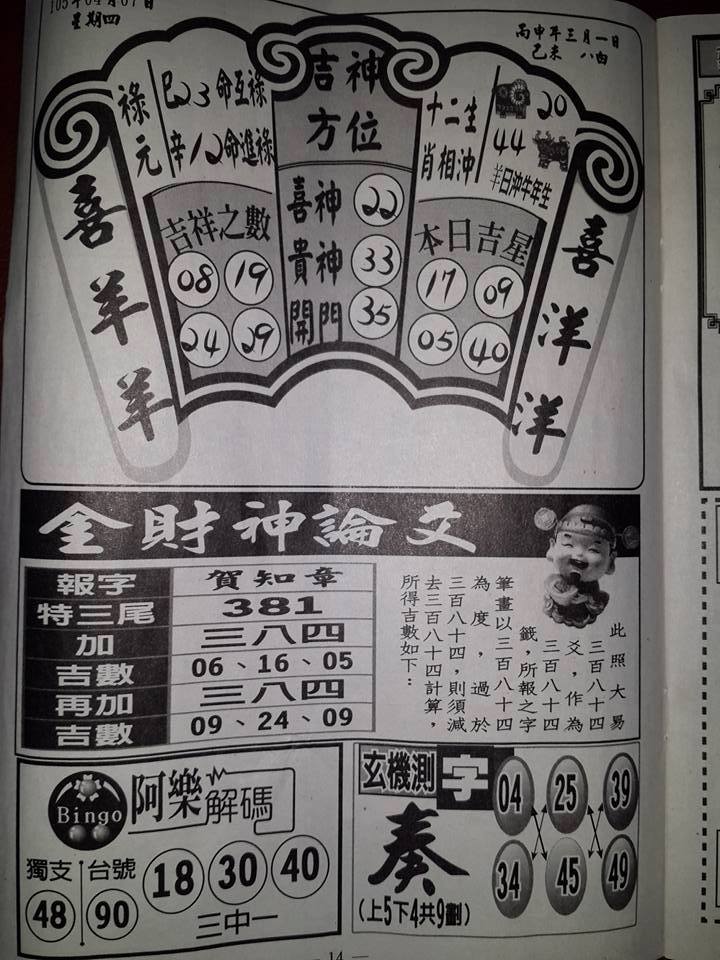 105年04月07日
星期四
丙申年三月一日
己未 八四
吉神方位
祿元
巳23命互祿
辛12命進祿
十二生肖相沖
20
44
羊日沖牛年生
喜羊羊
吉祥之數
08 19
24 29
喜神 22
貴神 33
開門 35
本日吉星
17 09
05 40
喜洋洋
金財神論爻
報字 賀知章
特三尾 381
加 三八四
吉數 06、16、05
再加 三八四
吉數 09、24、09
此照大易
三百八十四
爻，作為
三百八十四
籤，所報之字
筆畫以三百八十四
為度，過於
三百八十四，則須減
去三百八十四計算，
所得吉數如下：
Bingo
阿樂解碼
獨支 台號
48 90
18 30 40
三中一
玄機測字
奏
(上5下4共9劃)
04 25 39
34 45 49
— 14 —